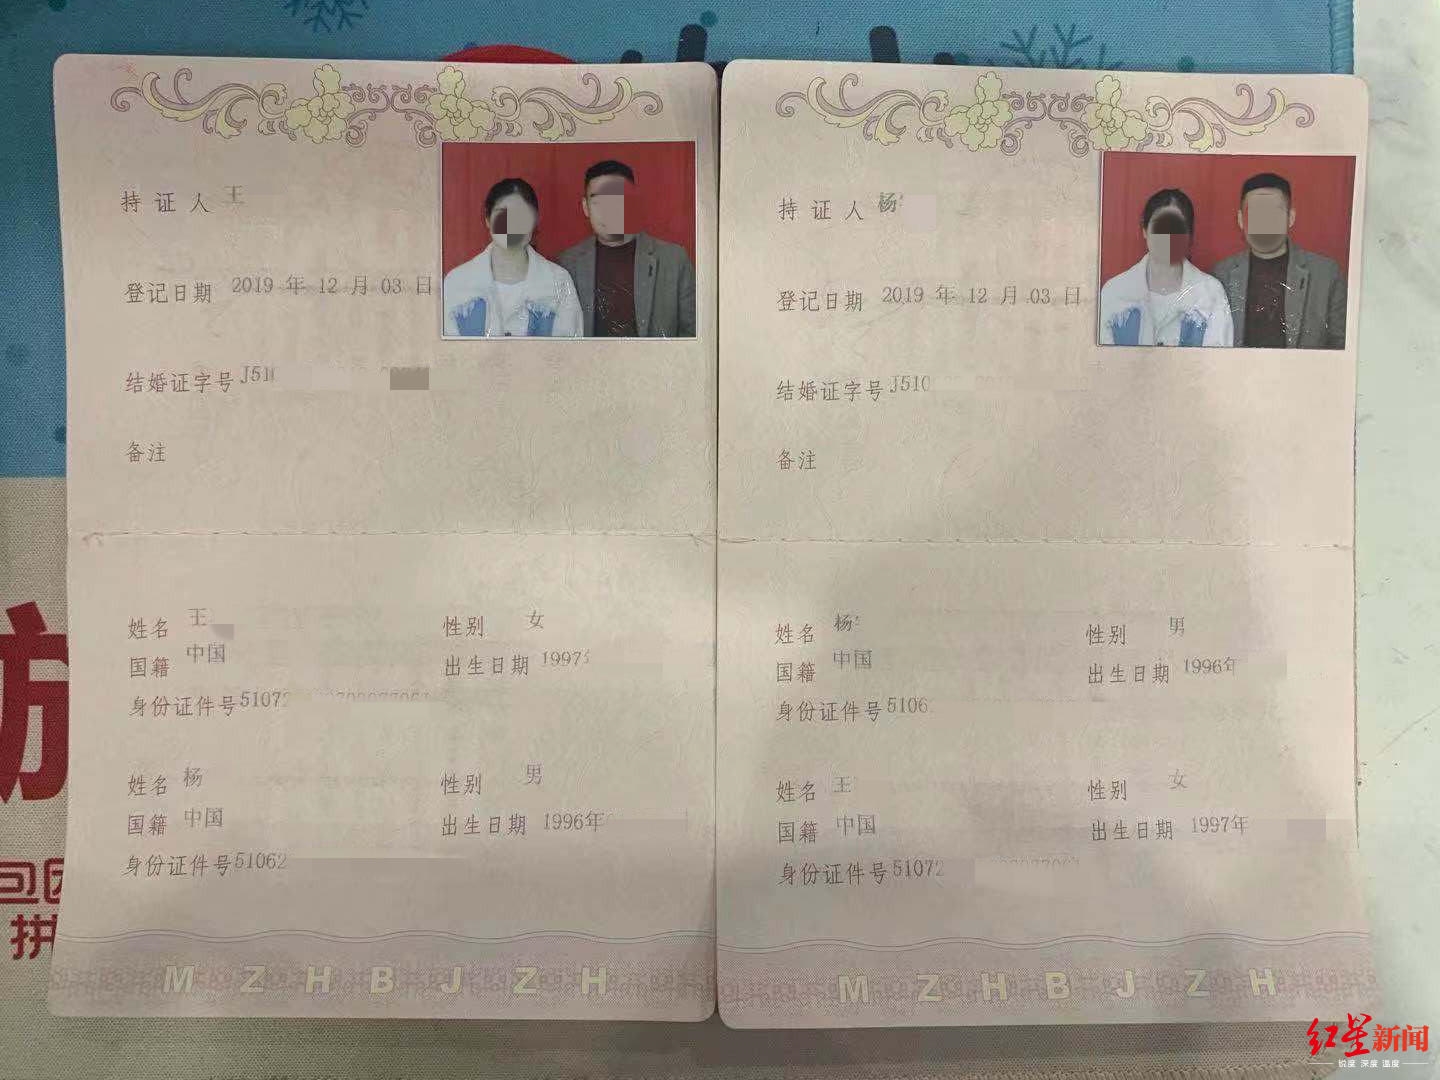 持证人 王
登记日期 2019 年 12 月 03 日
结婚证字号 J51
备注
姓名 王 性别 女
国籍 中国 出生日期 1997
身份证件号 51072
姓名 杨 性别 男
国籍 中国 出生日期 1996年
身份证件号 51062
MZHBJZH
持证人 杨
登记日期 2019 年 12 月 03 日
结婚证字号 J510
备注
姓名 杨 性别 男
国籍 中国 出生日期 1996年
身份证件号 5106
姓名 王 性别 女
国籍 中国 出生日期 1997年
身份证件号 51072
MZHBJZH
红星新闻
锐度 深度 温度